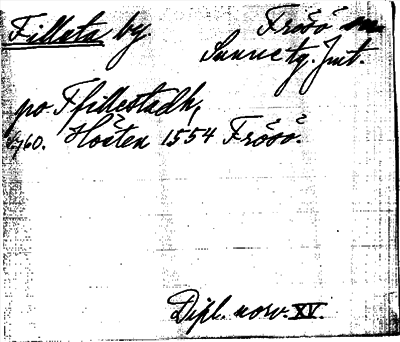 Fillsta by Frösö sn
Sunne tg. Jmt.
po Ffillestadh,
s. 760. Hösten 1554 Frösö.
Dipl. norv. XV.